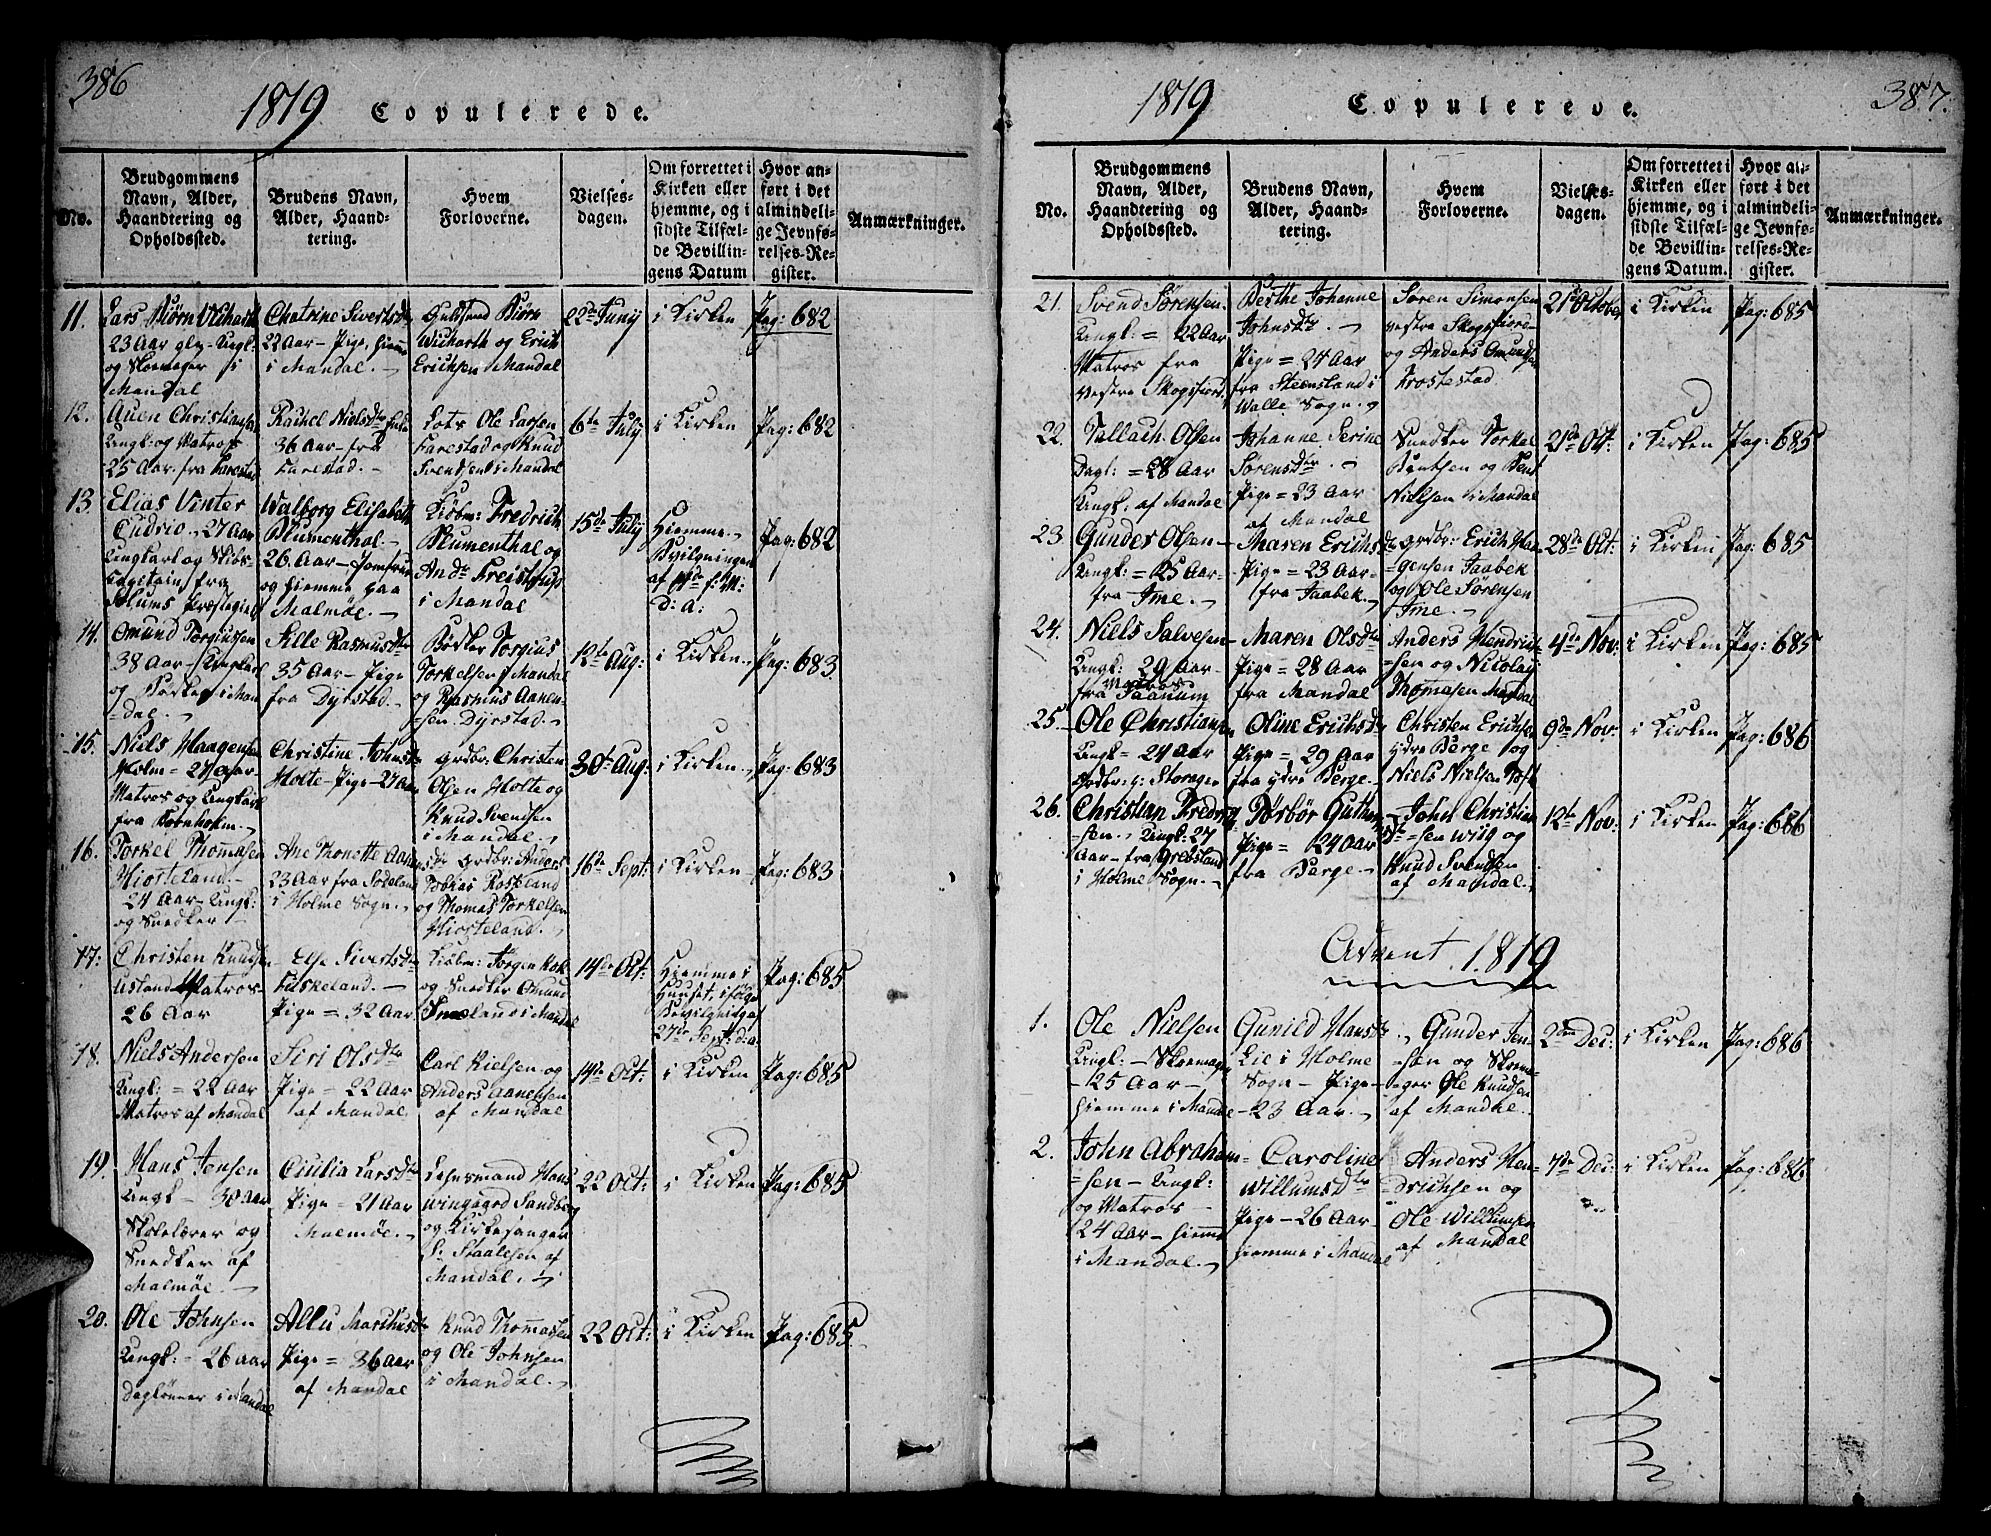 386
1819 Copulerede.
No.
Brudgommens
Navn, Alder,
Haandtering og
Opholdssted.
Brudens Navn,
Alder, Haand-
tering.
Hvem
Forloverne.
Vielses-
dagen.
Om forrettet i
Kirken eller
hjemme, og i
sidste Tilfæl-
de Bevillin-
gens Datum
Hvor an-
ført i det
almindeli-
ge Jevnfø-
relses-Re-
gister.
Anmærkninger.
11.
Lars Biørn
23 Aar
og Skomager i
Mandal
Chatrine Sivertsdr
22 Aar – Pige, hiemme
i Mandal. –
Guldsmed Biørn
Wicharth og Erich
Erichsen Mandal
22de Junij
i Kirken
Pag: 682
12.
Auen Christiansen
Ungk: og Matros
25 Aar. fra Farestad
Rachel Nielsdr
36 Aar – fra
Farestad. –
Lots Ole Larsen
Farestad og Knud
Svendsen i Mandal
6te July
i Kirken
Pag: 682
13.
Elias Vinter
27 Aar
Ungkarl og Skibs-
Capitain fra
Præstegield
Walborg Elisabeth
Blumenthal. –
26 Aar – Jomfrue
og hiemme paa
Malmøe. –
Kiøbm: Fredrich
Blumenthal og
Andr Freistrup
i Mandal
15de July
Hiemme –
Bevilgningen
af
Pag: 682
14.
Omund Torgiussen
38 Aar – Ungkarl
og i Man
-dal. –
Sille Rasmusdtr
35 Aar – Pige
fra Dyrstad. –
Bødker Torgius
Torkelsen i Mandal
og Rasmus Aanen-
-sen Dyrstad. –
12te Aug:
i Kirken –
Pag: 683
15.
Niels Haagensen
Holm = 27 Aar –
Matros og Ungkarl
fra Bornholm. –
Christine Johnsdr
Holte – Pige – 27 Aar
Grdbr: Christen
Olsen Holte og
Knud Svendsen
i Mandal. –
30te Aug:
i Kirken –
Pag: 683
16.
Torkel Thomasen
Hiorteland –
24 Aar – Ungk:
og Snedker –
Ane Thonette
23 Aar fra Sødeland
i Holme Sogn. –
Grdbr: Anders
Tobias Roskeland
og Thomas Torkelsen
Hiorteland. –
16de Sept:
i Kirken –
Pag: 683
17:
Christen Knudsen
Matros –
26 Aar
Else Sivertsdr
Fiskeland. –
Pige = 32 Aar
Kiøbm: Jørgen
og Snedker Omund
i Mandal
14de Oct:
Hjemme i
Huuset, ifølge
Bevilgning af
27de Sept: d: a.
Pag: 685
18.
Niels Andersen
Ungk: = 22 Aar
Matros af Mandal
Siri Olsdtr
Pige = 22 Aar
af Mandal.
Carl Nielsen og
Anders Aanensen
af Mandal
14de Oct:
i Kirken
Pag: 685
19.
Hans Jensen
Ungk – 30 Aar
Skolelærer og
Snedker af
Malmøe –
Cicilia Larsdtr
Pige = 21 Aar
Malmøe. –
Lehnsmand Hans
Wingaard Sandberg
og Kirkesanger
S: Staalesen af
Mandal. –
22 Oct:
i Kirken
Pag: 685
20.
Ole Johnsen
Ungk: – 26 Aar
Daglønner i Mandal
Allu
Pige = 36 Aar
af Mandal
Knud Thomassen
og Ole Johnsen
i Mandal. –
22 Oct:
i Kirken
Pag: 685.
387.
1819 Copulerede.
No.
Brudgommens
Navn, Alder,
Haandtering og
Opholdssted.
Brudens Navn,
Alder, Haand-
tering.
Hvem
Forloverne.
Vielses-
dagen.
Om forrettet i
Kirken eller
hjemme, og i
sidste Tilfæl-
de Bevillin-
gens Datum.
Hvor an-
ført i det
almindeli-
ge Jevnfø-
relses-Re-
gister.
Anmærkninger.
21.
Svend Sørensen
Ungk: = 22 Aar
Matros fra
vestre Skogsfiord
Berthe Johanne
Johnsdr. –
Pige = 24 Aar
fra Steensland i
Walle Sogn.
Søren Simonsen
vestre Skogsfiord
og Anders Omundsen
Frostestad
21de October
i Kirken
Pag: 685
22.
Tallach Olsen
Dagl: = 28 Aar
Ungk: af Mandal
Johanne Serine
Sørensdtr. –
Pige = 23 Aar
af Mandal
Snedker Torkel
Bentsen og Bent
Nielsen i Mandal
21de Oct:
i Kirken
Pag: 685
23.
Gunder Olsen –
Ungk: = 25 Aar –
fra Ime. –
Maren Erichsdr
Pige = 23 Aar –
fra Faabek. –
Grdbr: Erich Haa
-gensen Faabek
og Ole Sørensen
Ime. –
28de Oct:
i Kirken
Pag: 685
24.
Niels Salvesen –
Ungk: 29 Aar –
Matros
fra Faanum
Maren Olsdtr
Pige = 28 Aar
fra Mandal
Anders Hendrich-
=sen og Nicolay
Thomasen Mandal
4de Nov:
i Kirken
Pag: 685
25.
Ole Christiansen
Ungk = 24 Aar
Oline Erichsdr
Pige = 29 Aar
fra ydre Berge –
Christen Erichsen
ydre Berge og
Niels Nielsen Toft
9de Nov:
i Kirken
Pag: 686
26.
Christian Fredrich
=sen. Ungk: 27
Aar – fra Grebsland
i Holme Sogn. –
Torbør
Pige = 24 Aar
fra Berge. –
John Christian
=sen Wiig og
Knud Svendsen
af Mandal.
12te Nov:
i Kirken
Pag: 686
Advent 1819
1.
Ole Nielsen
Ungk: – Skomager
– 25 Aar –
hiemme i Mandal
Gunild Hansdr
Lie i Holme
Sogn – Pige –
– 23 Aar. –
Gunder Jen-
=sen og Skoma-
=ger Ole Knudsen
af Mandal.
2den Dec:
i Kirken
Pag: 686
2.
John Abraham=
=sen – Ungk:
og Matros –
24 Aar – hiemme
i Mandal. –
Caroline
Willumsdtr
Pige – 26 Aar –
hiemme i Mandal
Anders Hen-
=drichsen og
Ole Willumsen
af Mandal
7de Dec:
i Kirken
Pag: 686